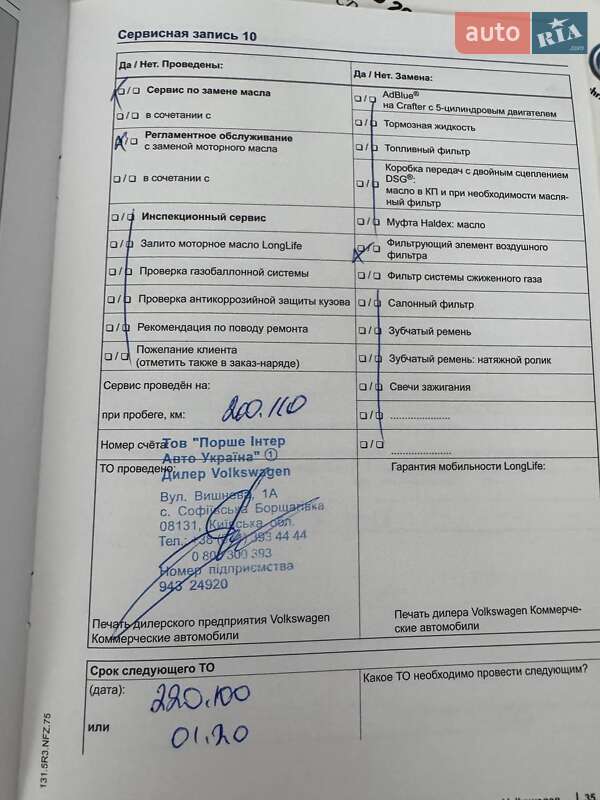 auto RIA .com
Сервисная запись 10
Да / Нет. Проведены:
Сервис по замене масла
в сочетании с
Регламентное обслуживание
с заменой моторного масла
в сочетании с
Инспекционный сервис
Залито моторное масло LongLife
Проверка газобаллонной системы
Проверка антикоррозийной защиты кузова
Рекомендация по поводу ремонта
Пожелание клиента
(отметить также в заказ-наряде)
Да / Нет. Замена:
AdBlue®
на Crafter с 5-цилиндровым двигателем
Тормозная жидкость
Топливный фильтр
Коробка передач с двойным сцеплением
DSG®:
масло в КП и при необходимости масля-
ный фильтр
Муфта Haldex: масло
Фильтрующий элемент воздушного
фильтра
Фильтр системы сжиженного газа
Салонный фильтр
Зубчатый ремень
Зубчатый ремень: натяжной ролик
Свечи зажигания
Сервис проведён на:
при пробеге, км: 200.110
Номер счёта
ТО проведено:
Тов "Порше Інтер
Авто Україна" ①
Дилер Volkswagen
Вул. Вишнева, 1А
с. Софіївська Борщагівка
08131, Київська обл.
Тел.: +38 393 44 44
0 800 300 393
Номер підприємства
943 24920
Печать дилерского предприятия Volkswagen
Коммерческие автомобили
Гарантия мобильности LongLife:
Печать дилера Volkswagen Коммерче-
ские автомобили
Срок следующего ТО
(дата): 220.100
или 01.20
Какое ТО необходимо провести следующим?
131.5R3.NFZ.75
35